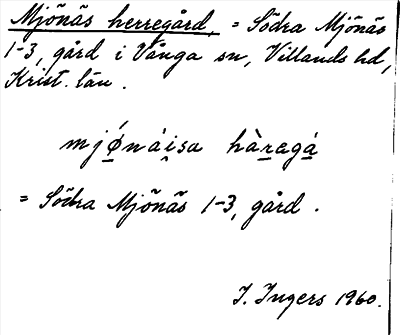 Mjönäs herregård, = Södra Mjönäs
1-3, gård i Vånga sn, Villands hd,
Krist. län.
mjǿnái̯sa hàragá
= Södra Mjönäs 1-3, gård.
I. Ingers 1960.